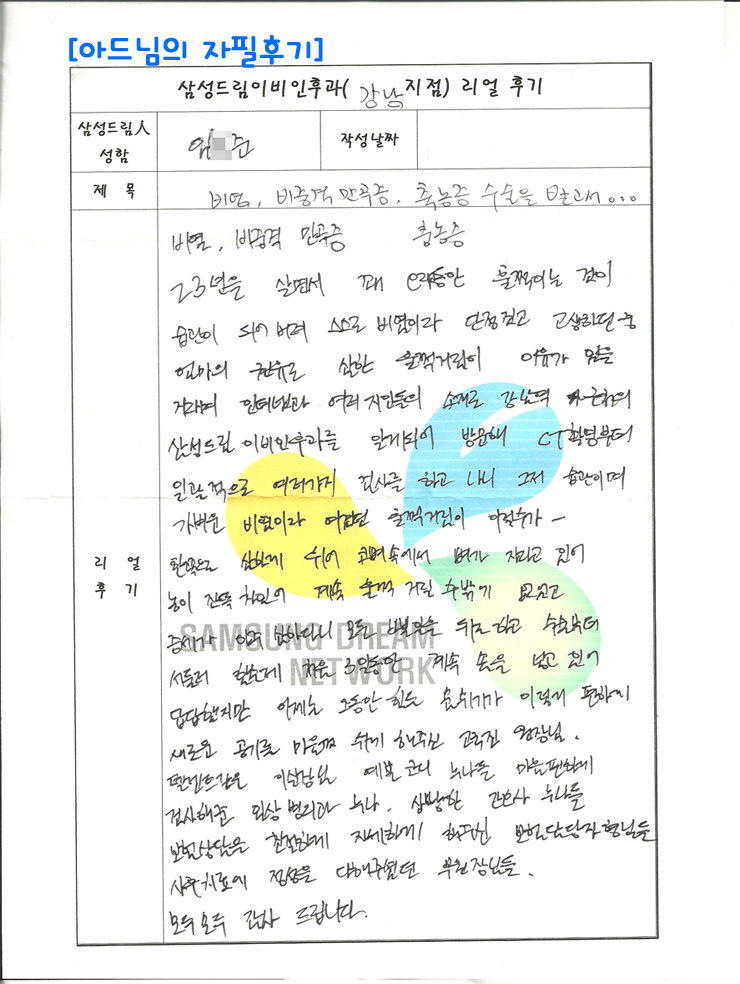 [아드님의 자필후기]
삼성드림이비인후과( 강남지점) 리얼 후기
삼성드림人 성함
임 준
작성날짜
제 목
비염, 비중격 만곡증, 축농증 수술을 받고서...
비염, 비중격 만곡증 축농증
23년을 살면서 꽤 오랫동안 훌쩍이는 것이
습관이 되어 버려 스스로 비염이라 단정짓고 고생하던 중
엄마의 권유로 심한 훌쩍거림이 이유가 있을
거라며 인터넷과 여러 지인들의 소개로 강남역 근처의
삼성드림 이비인후과를 알게되어 방문해 CT촬영부터
일괄적으로 여러가지 검사를 하고 나니 그저 습관이며
가벼운 비염이라 여겼던 훌쩍거림이 아적수가 -
한쪽으로 심하게 휘어 코벽속에서 뼈가 자라고 있어
농이 잔뜩 차있어 계속 훌쩍 거릴 수밖에 없었고
증세가 아주 심하다니 모든 일을 뒤로 하고 수술부터
서둘러 했는데 처음 3일동안 계속 솜을 넣고 있어
답답했지만 이제는 그동안 힘든 숨쉬기가 이렇게 편하게
새로운 공기를 마음껏 쉬게 해주신 원장님.
이실장님 예쁜 코디 누나들 마음편하게
검사해준 임상병리과 누나. 상냥한 간호사 누나들
보험상담을 친절하게 자세하게 해주신 보험담당자형님들
사후치료에 정성을 다해주셨던 부원장님들.
모두모두 감사 드립니다.
리 얼
후 기
SAMSUNG DREAM
NETWORK